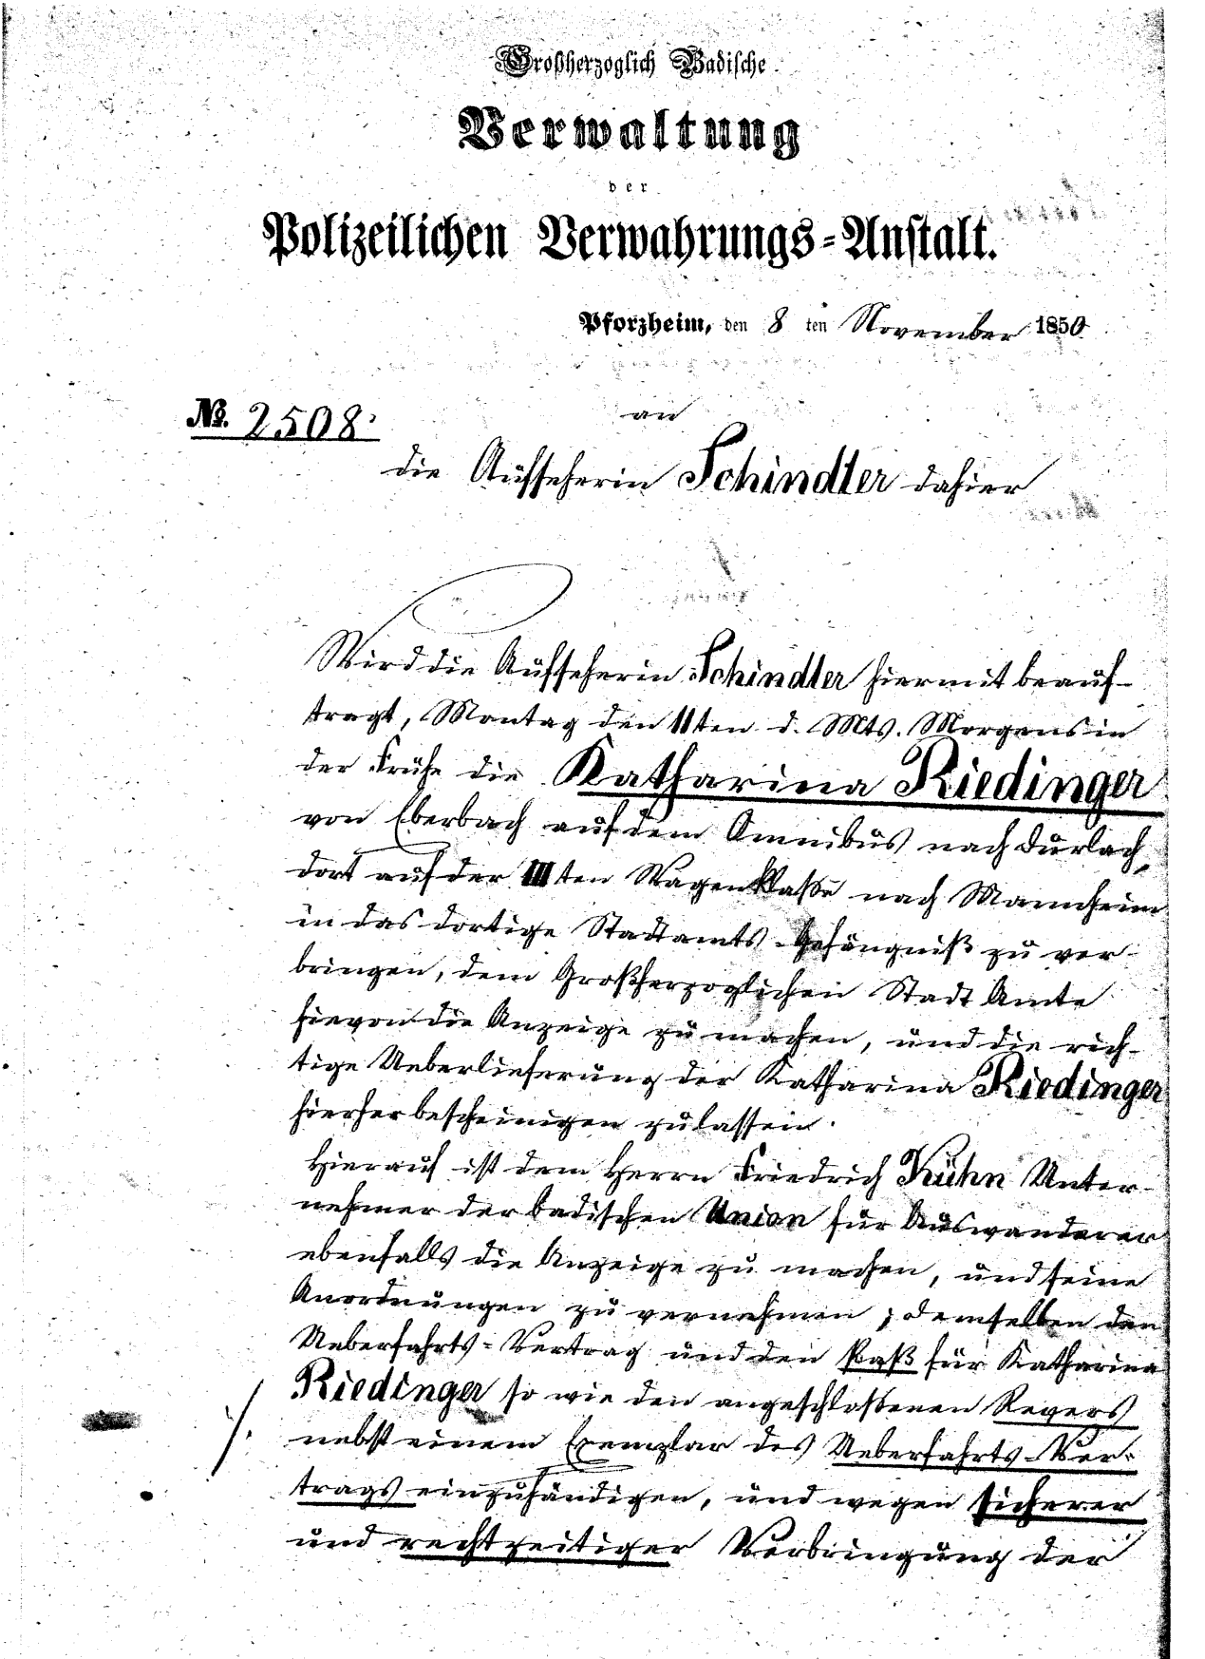 Großherzoglich Badische
Verwaltung
der
Polizeilichen Verwahrungs-Anstalt.
Pforzheim, den 8 ten November 1850
№. 2508.
an
die Aufseherin Schindler dahier
Wird die Aufseherin Schindler hiermit beauf-
tragt, Montag den 11ten d. Mts. Morgens in
der Frühe die Katharina Riedinger
von Eberbach auf dem Omnibus nach Durlach,
dort auf der IIIten Wagenklaße nach Mannheim
in das dortige Stadtamts-Gefängniß zu ver-
bringen, dem Großherzoglichen Stadt Amte
hievon die Anzeige zu machen, und die rich-
tige Ueberlieferung der Katharina Riedinger
hierher bescheinigen zu lassen.
Hierauf ist dem Herrn Friedrich Kühn Unter-
nehmer der badischen Union für Auswanderer
ebenfalls die Anzeige zu machen, und seine
Anordnungen zu vernehmen; demselben den
Ueberfahrts-Vertrag und den Paß für Katharina
Riedinger so wie den angeschloßenen Revers
nebst einem Exemplar des Ueberfahrts-Ver-
trags einzuhändigen, und wegen sicherer
und rechtzeitiger Verbringung der